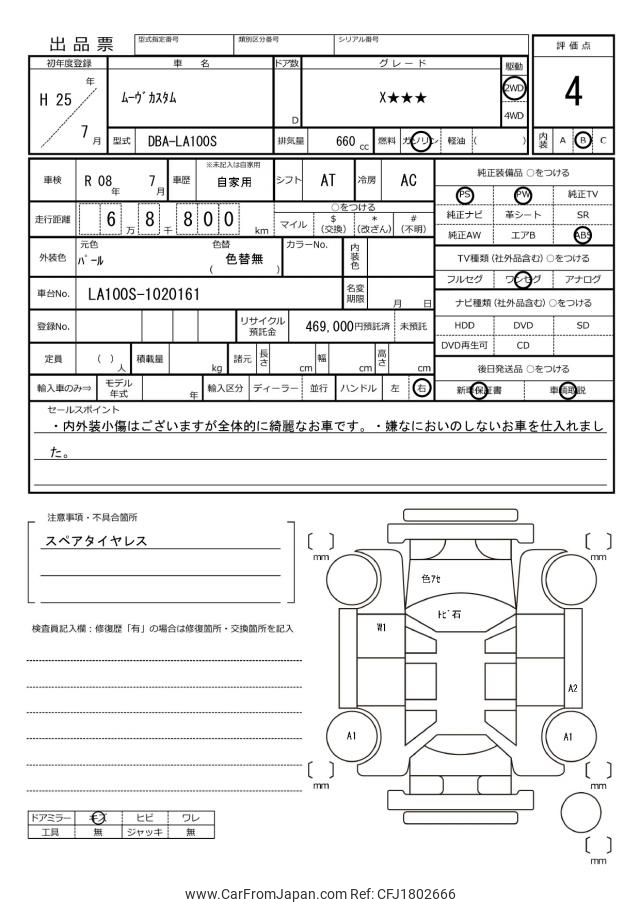 出品票
型式指定番号 類別区分番号 シリアル番号
評価点
4
内装 A B C
初年度登録 車名 ドア数 グレード 駆動
H 25 年 7 月
ムーヴカスタム
D
X★★★
2WD
4WD
型式 DBA-LA100S 排気量 660 cc 燃料 ガソリン 軽油 ( )
車検 R 08 年 7 月 車歴 ※未記入は自家用 自家用 シフト AT 冷房 AC
走行距離 6 8 800 万 千 km
○をつける
マイル $(交換) *(改ざん) #(不明)
外装色 元色 パール 色替 色替無 ( ) カラーNo. 内装色
車台No. LA100S-1020161 名変期限 月 日
登録No. リサイクル預託金 469,000円預託済 未預託
定員 ( ) 人 積載量 kg 諸元 長さ cm 幅 cm 高さ cm
輸入車のみ⇒ モデル年式 年 輸入区分 ディーラー 並行 ハンドル 左 右
純正装備品 ○をつける
PS PW 純正TV
純正ナビ 革シート SR
純正AW エアB ABS
TV種類(社外品含む) ○をつける
フルセグ ワンセグ アナログ
ナビ種類(社外品含む) ○をつける
HDD DVD SD
DVD再生可 CD
後日発送品 ○をつける
新車保証書 車輌取説
セールスポイント
・内外装小傷はございますが全体的に綺麗なお車です。・嫌なにおいのしないお車を仕入れまし
た。
注意事項・不具合箇所
スペアタイヤレス
検査員記入欄：修復歴「有」の場合は修復箇所・交換箇所を記入
mm mm
色アセ
トビ石
W1
A2
A1 A1
mm mm
mm
ドアミラー キズ ヒビ ワレ
工具 無 ジャッキ 無
www.CarFromJapan.com Ref: CFJ1802666